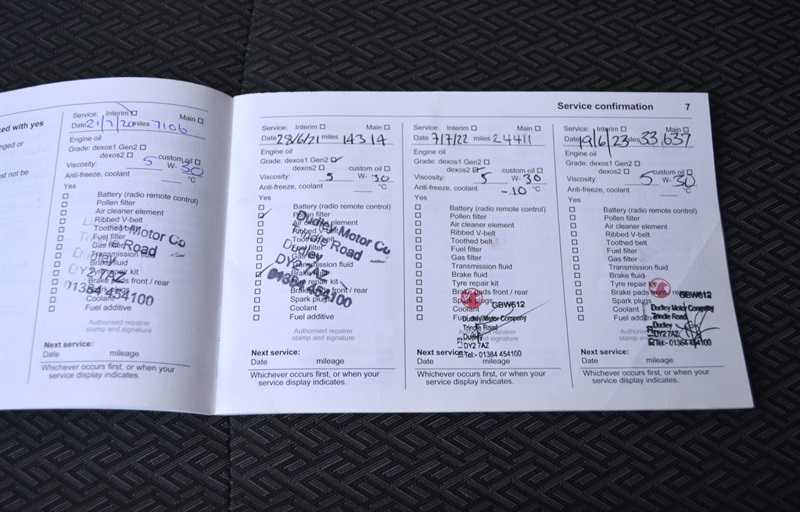 ed with yes
nged or
st not be
Service: Interim Main
Date 21/7/20 miles 7106
Engine oil
Grade: dexos1 Gen2
dexos2 custom oil
Viscosity: 5 W- 30
Anti-freeze, coolant °C
Yes
Battery (radio remote control)
Pollen filter
Air cleaner element
Ribbed V-belt
Toothed belt
Fuel filter
Gas filter
Transmission fluid
Brake fluid
Tyre repair kit
Brake pads front / rear
Spark plugs
Coolant
Fuel additive
Motor Co
Road
Dudley
DY2 7AZ
01384 454100
Authorised repairer
stamp and signature
Next service:
Date mileage
Whichever occurs first, or when your
service display indicates.
Service confirmation 7
Service: Interim Main
Date 28/6/21 miles 14314
Engine oil
Grade: dexos1 Gen2
dexos2 custom oil
Viscosity: 5 W- 30
Anti-freeze, coolant °C
Yes
Battery (radio remote control)
Pollen filter
Air cleaner element
Ribbed V-belt
Toothed belt
Fuel filter
Gas filter
Transmission fluid
Brake fluid
Tyre repair kit
Brake pads front / rear
Spark plugs
Coolant
Fuel additive
Dudley Motor Co
Trindle Road
Dudley
DY2 7AZ
01384 454100
Authorised repairer
stamp and signature
Next service:
Date mileage
Whichever occurs first, or when your
service display indicates.
Service: Interim Main
Date 7/7/22 miles 24411
Engine oil
Grade: dexos1 Gen2
dexos2 custom oil
Viscosity: 5 W- 30
Anti-freeze, coolant -10 °C
Yes
Battery (radio remote control)
Pollen filter
Air cleaner element
Ribbed V-belt
Toothed belt
Fuel filter
Gas filter
Transmission fluid
Brake fluid
Tyre repair kit
Brake pads front / rear
Spark plugs
Coolant
GBW612
Dudley Motor Company
Trindle Road
Dudley
DY2 7AZ
Tel:- 01384 454100
Next service:
Date mileage
Whichever occurs first, or when your
service display indicates.
Service: Interim Main
Date 19/6/23 miles 33,637
Engine oil
Grade: dexos1 Gen2
dexos2 custom oil
Viscosity: 5 W- 30
Anti-freeze, coolant °C
Yes
Battery (radio remote control)
Pollen filter
Air cleaner element
Ribbed V-belt
Toothed belt
Fuel filter
Gas filter
Transmission fluid
Brake fluid
Tyre repair kit
Brake pads front / rear
Spark plugs
Coolant
Fuel additive
GBW612
Dudley Motor Company
Trindle Road
Dudley
DY2 7AZ
Tel:- 01384 454100
Authorised repairer
stamp and signature
Next service:
Date mileage
Whichever occurs first, or when your
service display indicates.